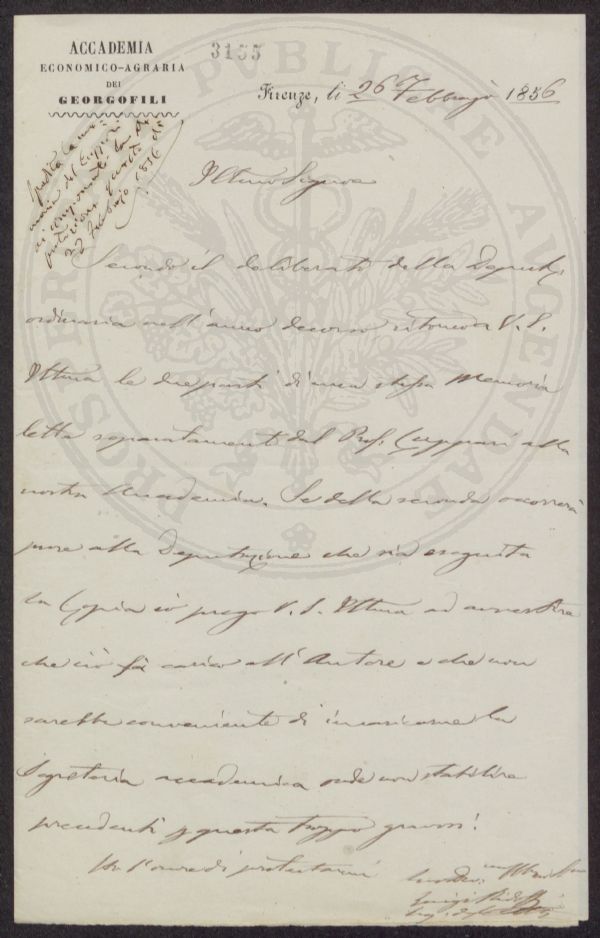 ACCADEMIA
ECONOMICO-AGRARIA
DEI
GEORGOFILI
3155
Firenze, li 26 Febbrajo 1856
PROSPERITATI PVBLICAE AVGENDAE
22 Febbrajo 1856
Illmo Signore
Secondo il deliberato della Deputz.
ordinaria nell'anno decorso ritorno a V. S.
Illma le due parti di una stessa Memoria
letta separatamente dal Prof. Cuppari alla
nostra Accademia. Se della seconda occorrerà
pure alla Deputazione che sia eseguita
la Copia io prego V. S. Illma ad avvertire
che ciò fà carico all'Autore e che non
sarebbe conveniente di incaricarne la
Segreteria accademica onde non stabilire
precedenti p questa troppo gravosi.
Ho l'onore di protestarmi